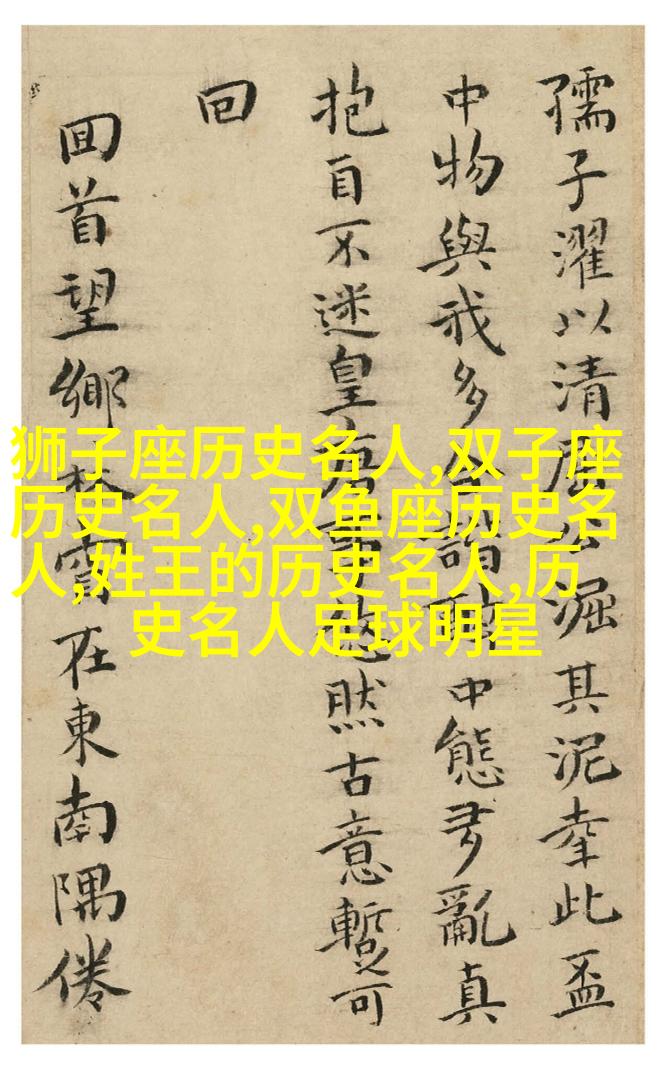 狮子座历史名人,双子座
历史名人,双鱼座历史名
人,姓王的历史名人,历
史名人足球明星
孺子濯以清淈其泥幸此盃
中物與我多中態亂真
抱自不迷皇然古意暫可
回
回首望鄉在東南隅倦